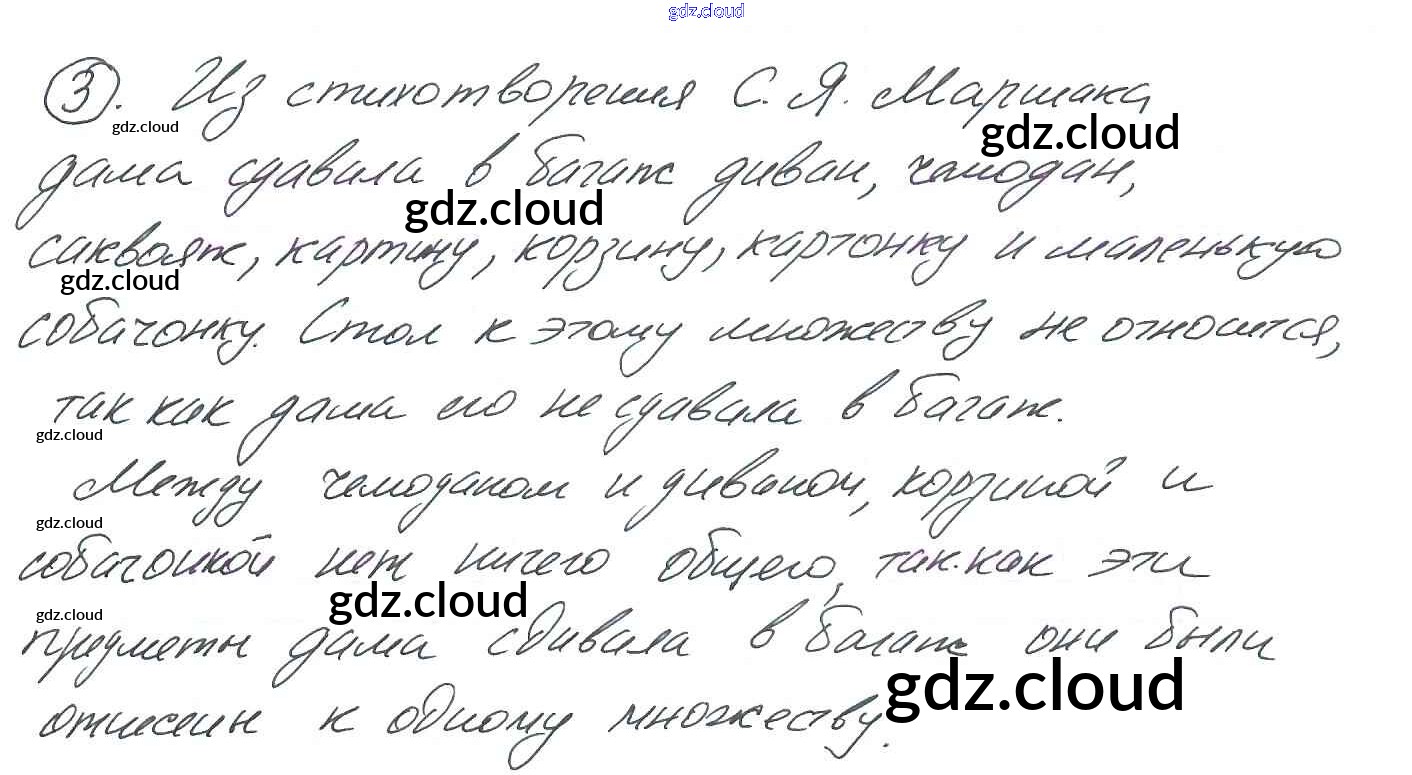 gdz.cloud
3. Из стихотворения С. Я. Маршака
gdz.cloud
gdz.cloud
дама сдавала в багаж диван, чемодан,
gdz.cloud
саквояж, картину, корзину, картонку и маленькую
gdz.cloud
собачонку. Стол к этому множеству не относится,
так как дама его не сдавала в багаж.
gdz.cloud
Между чемоданом и диваном, корзиной и
gdz.cloud
собачонкой нет ничего общего, так как эти
gdz.cloud
gdz.cloud
предметы дама сдивала в багаж они были
gdz.cloud
отнесены к одному множеству.